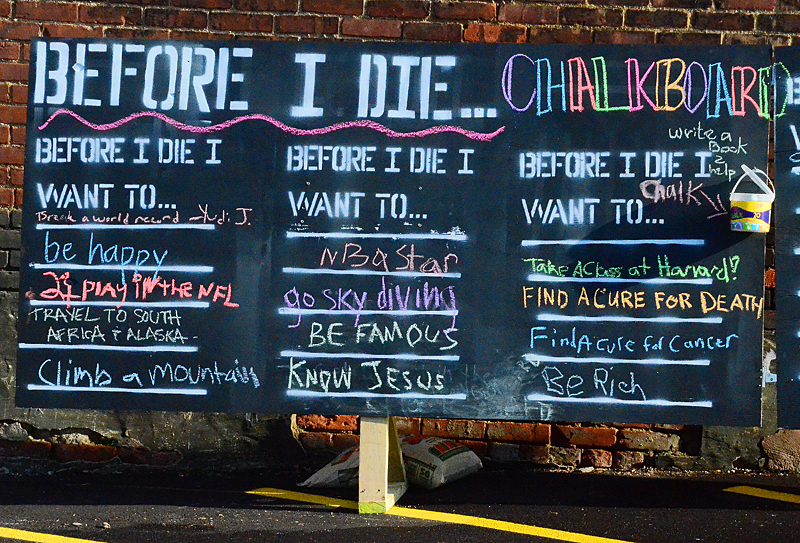 BEFORE I DIE... CHALKBOARD
BEFORE I DIE I
WANT TO...
Break a world record - Yudi J.
be happy
play in the NFL
TRAVEL TO SOUTH
AFRICA & ALASKA
Climb a mountain
BEFORE I DIE I
WANT TO...
NBA Star
go sky diving
BE FAMOUS
KNOW JESUS
write a
Book
2
help
BEFORE I DIE I
chalk
WANT TO...
Take A Class at Harvard?
FIND A CURE FOR DEATH
Find A cure for Cancer
Be Rich